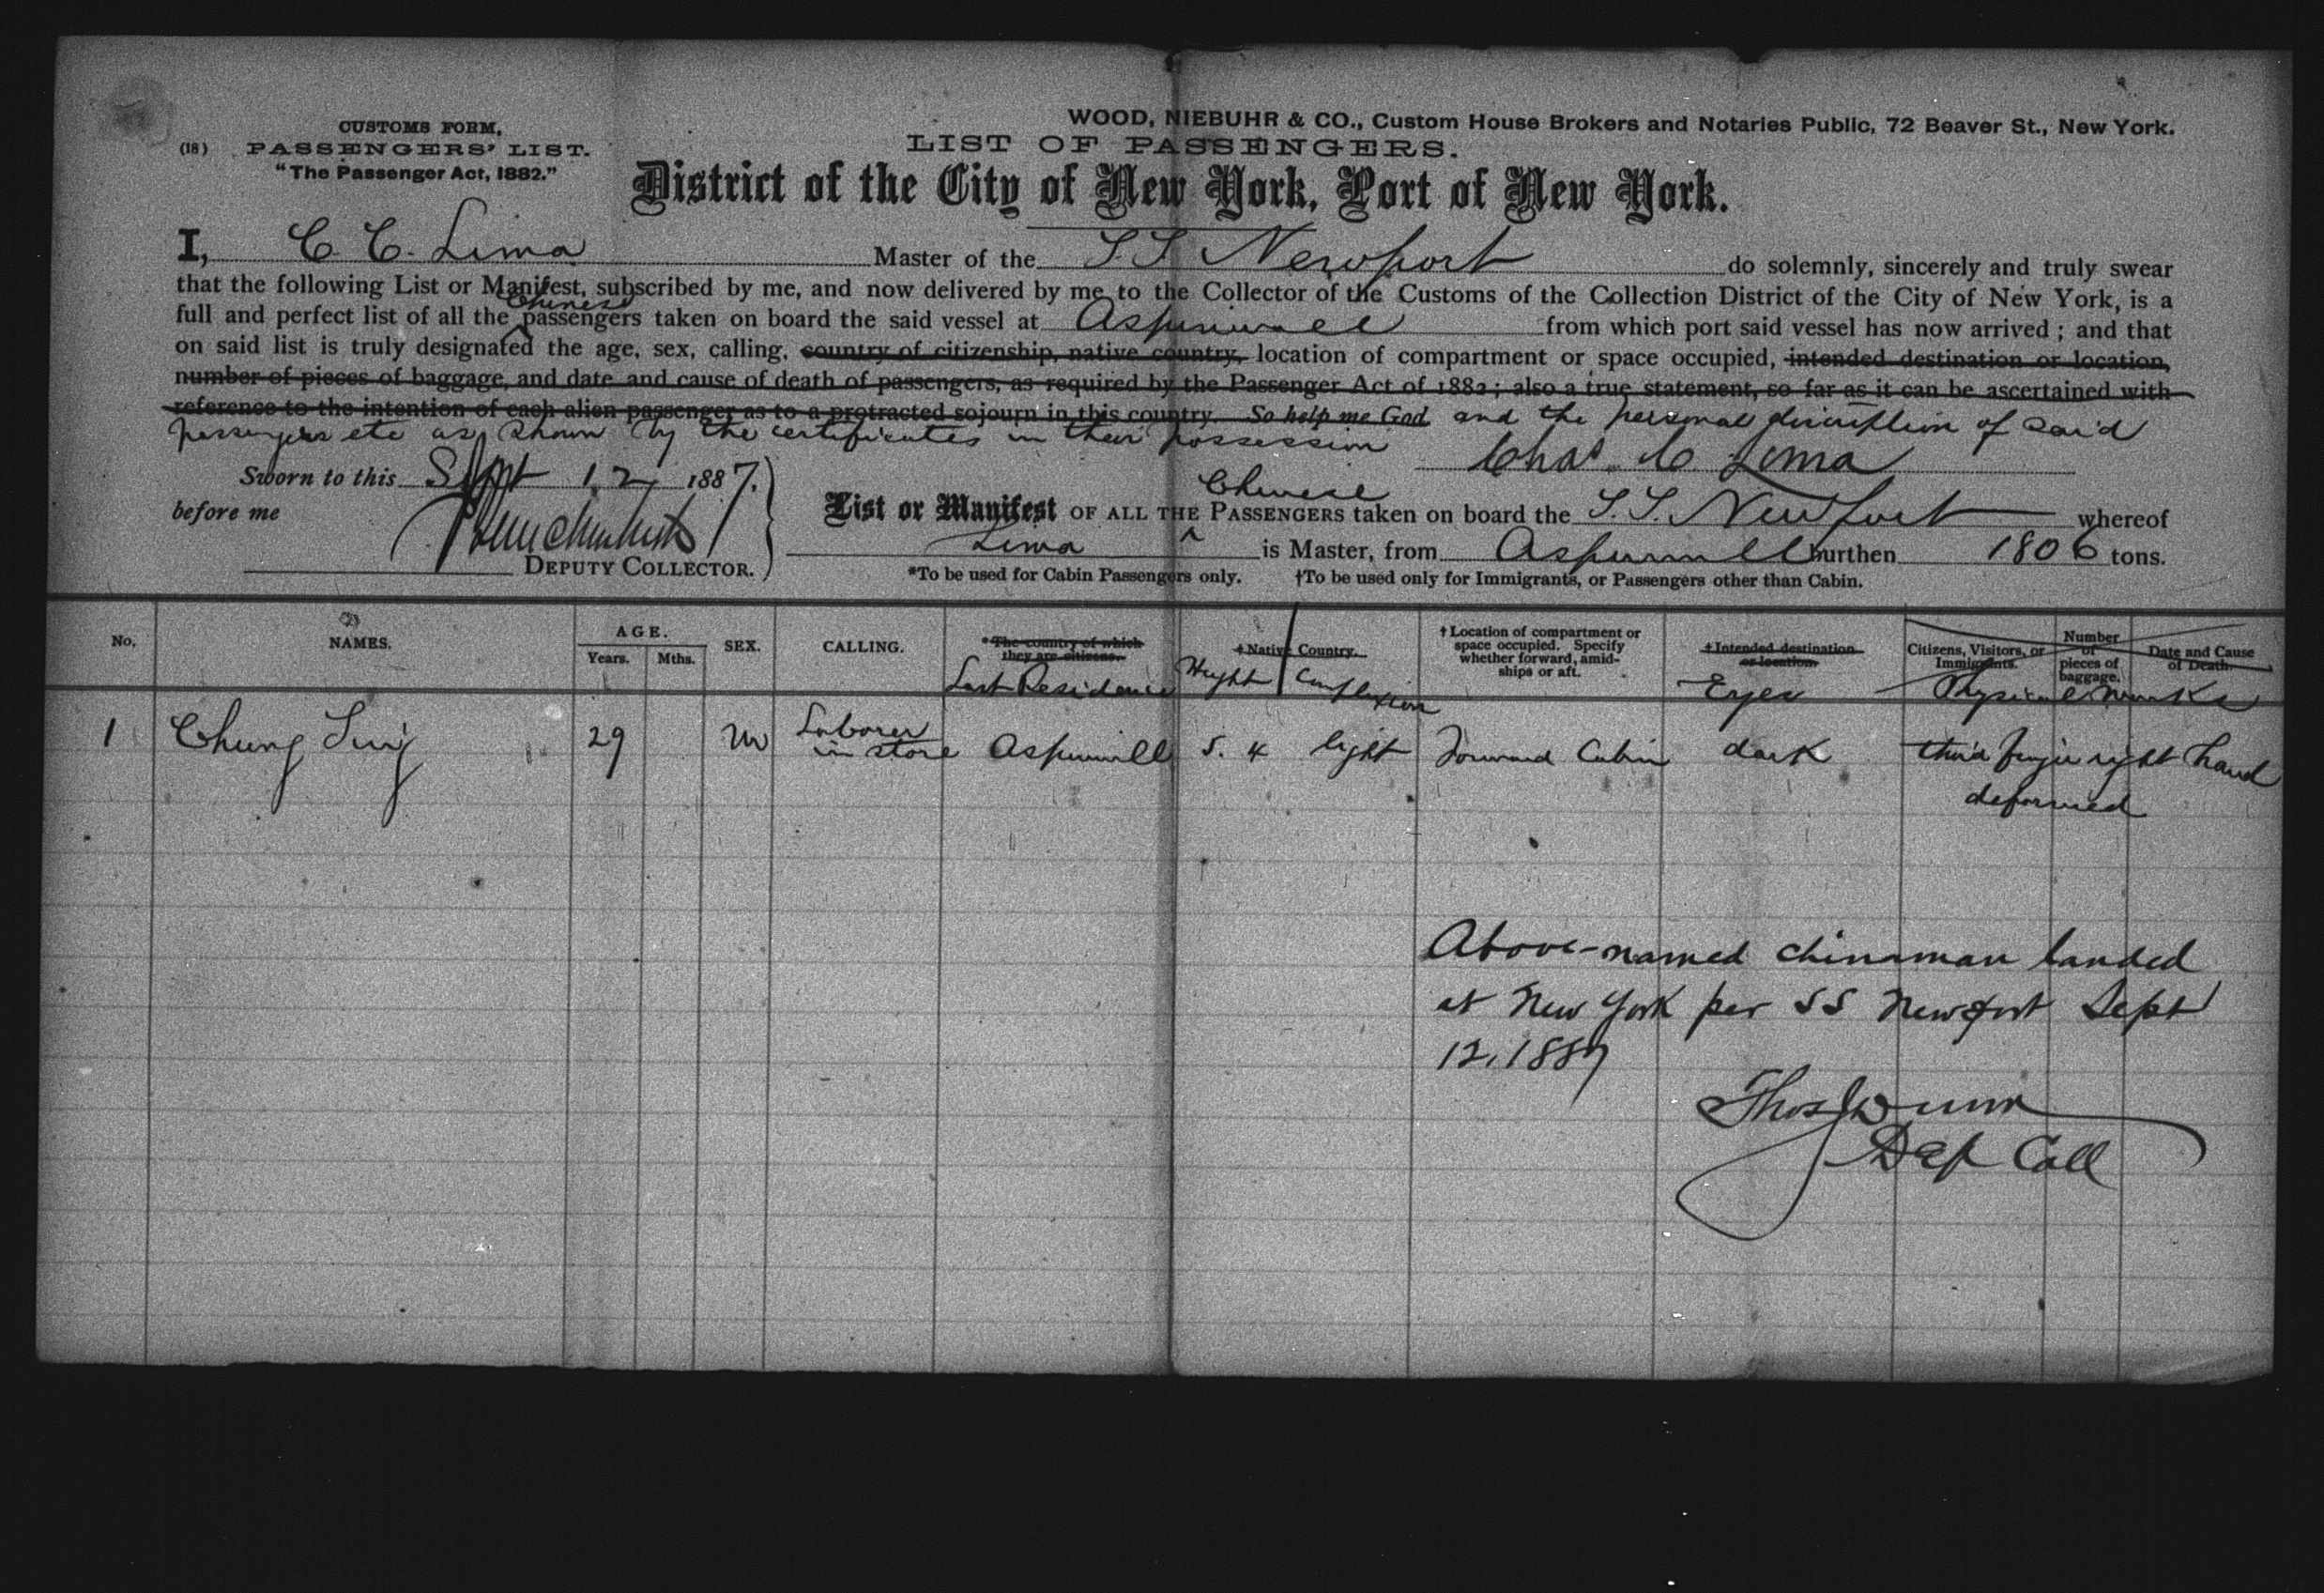 WOOD, NIEBUHR & CO., Custom House Brokers and Notaries Public, 72 Beaver St., New York.
CUSTOMS FORM,
(18) PASSENGERS' LIST.
"The Passenger Act, 1882."
LIST OF PASSENGERS.
District of the City of New York, Port of New York.
I, C. C. Lima Master of the S.S Newport do solemnly, sincerely and truly swear
that the following List or Manifest, subscribed by me, and now delivered by me to the Collector of the Customs of the Collection District of the City of New York, is a
Chinese
full and perfect list of all the passengers taken on board the said vessel at Aspinwall from which port said vessel has now arrived; and that
on said list is truly designated the age, sex, calling, country of citizenship, native country, location of compartment or space occupied, intended destination or location,
number of pieces of baggage, and date and cause of death of passengers, as required by the Passenger Act of 1882; also a true statement, so far as it can be ascertained with
reference to the intention of each alien passenger as to a protracted sojourn in this country. So help me God and the personal discription of said
passengers etc as shown by the certificates in their possession
Chas. C Lima
Sworn to this Sept 12, 1887.
before me
DEPUTY COLLECTOR.
Chinese
List or Manifest OF ALL THE PASSENGERS taken on board the S.S. Newport whereof
Lima is Master, from Aspinwall burthen 1806 tons.
*To be used for Cabin Passengers only. †To be used only for Immigrants, or Passengers other than Cabin.
No. NAMES. AGE. Years. Mths. SEX. CALLING. *The country of which they are citizens. Last Residence †Native Country. Height Complexion †Location of compartment or space occupied. Specify whether forward, amidships or aft. †Intended destination or location. Eyes Citizens, Visitors, or Immigrants. Number of pieces of baggage. Date and Cause of Death. Physical marks
1 Chung Sing 29 m Laborer in store Aspinwall 5. 4 light Forward Cabin dark third finger right hand
deformed
Above-named chinaman landed
at New York per SS Newport Sept
12, 1887
Thos J Dunn
Dep Coll